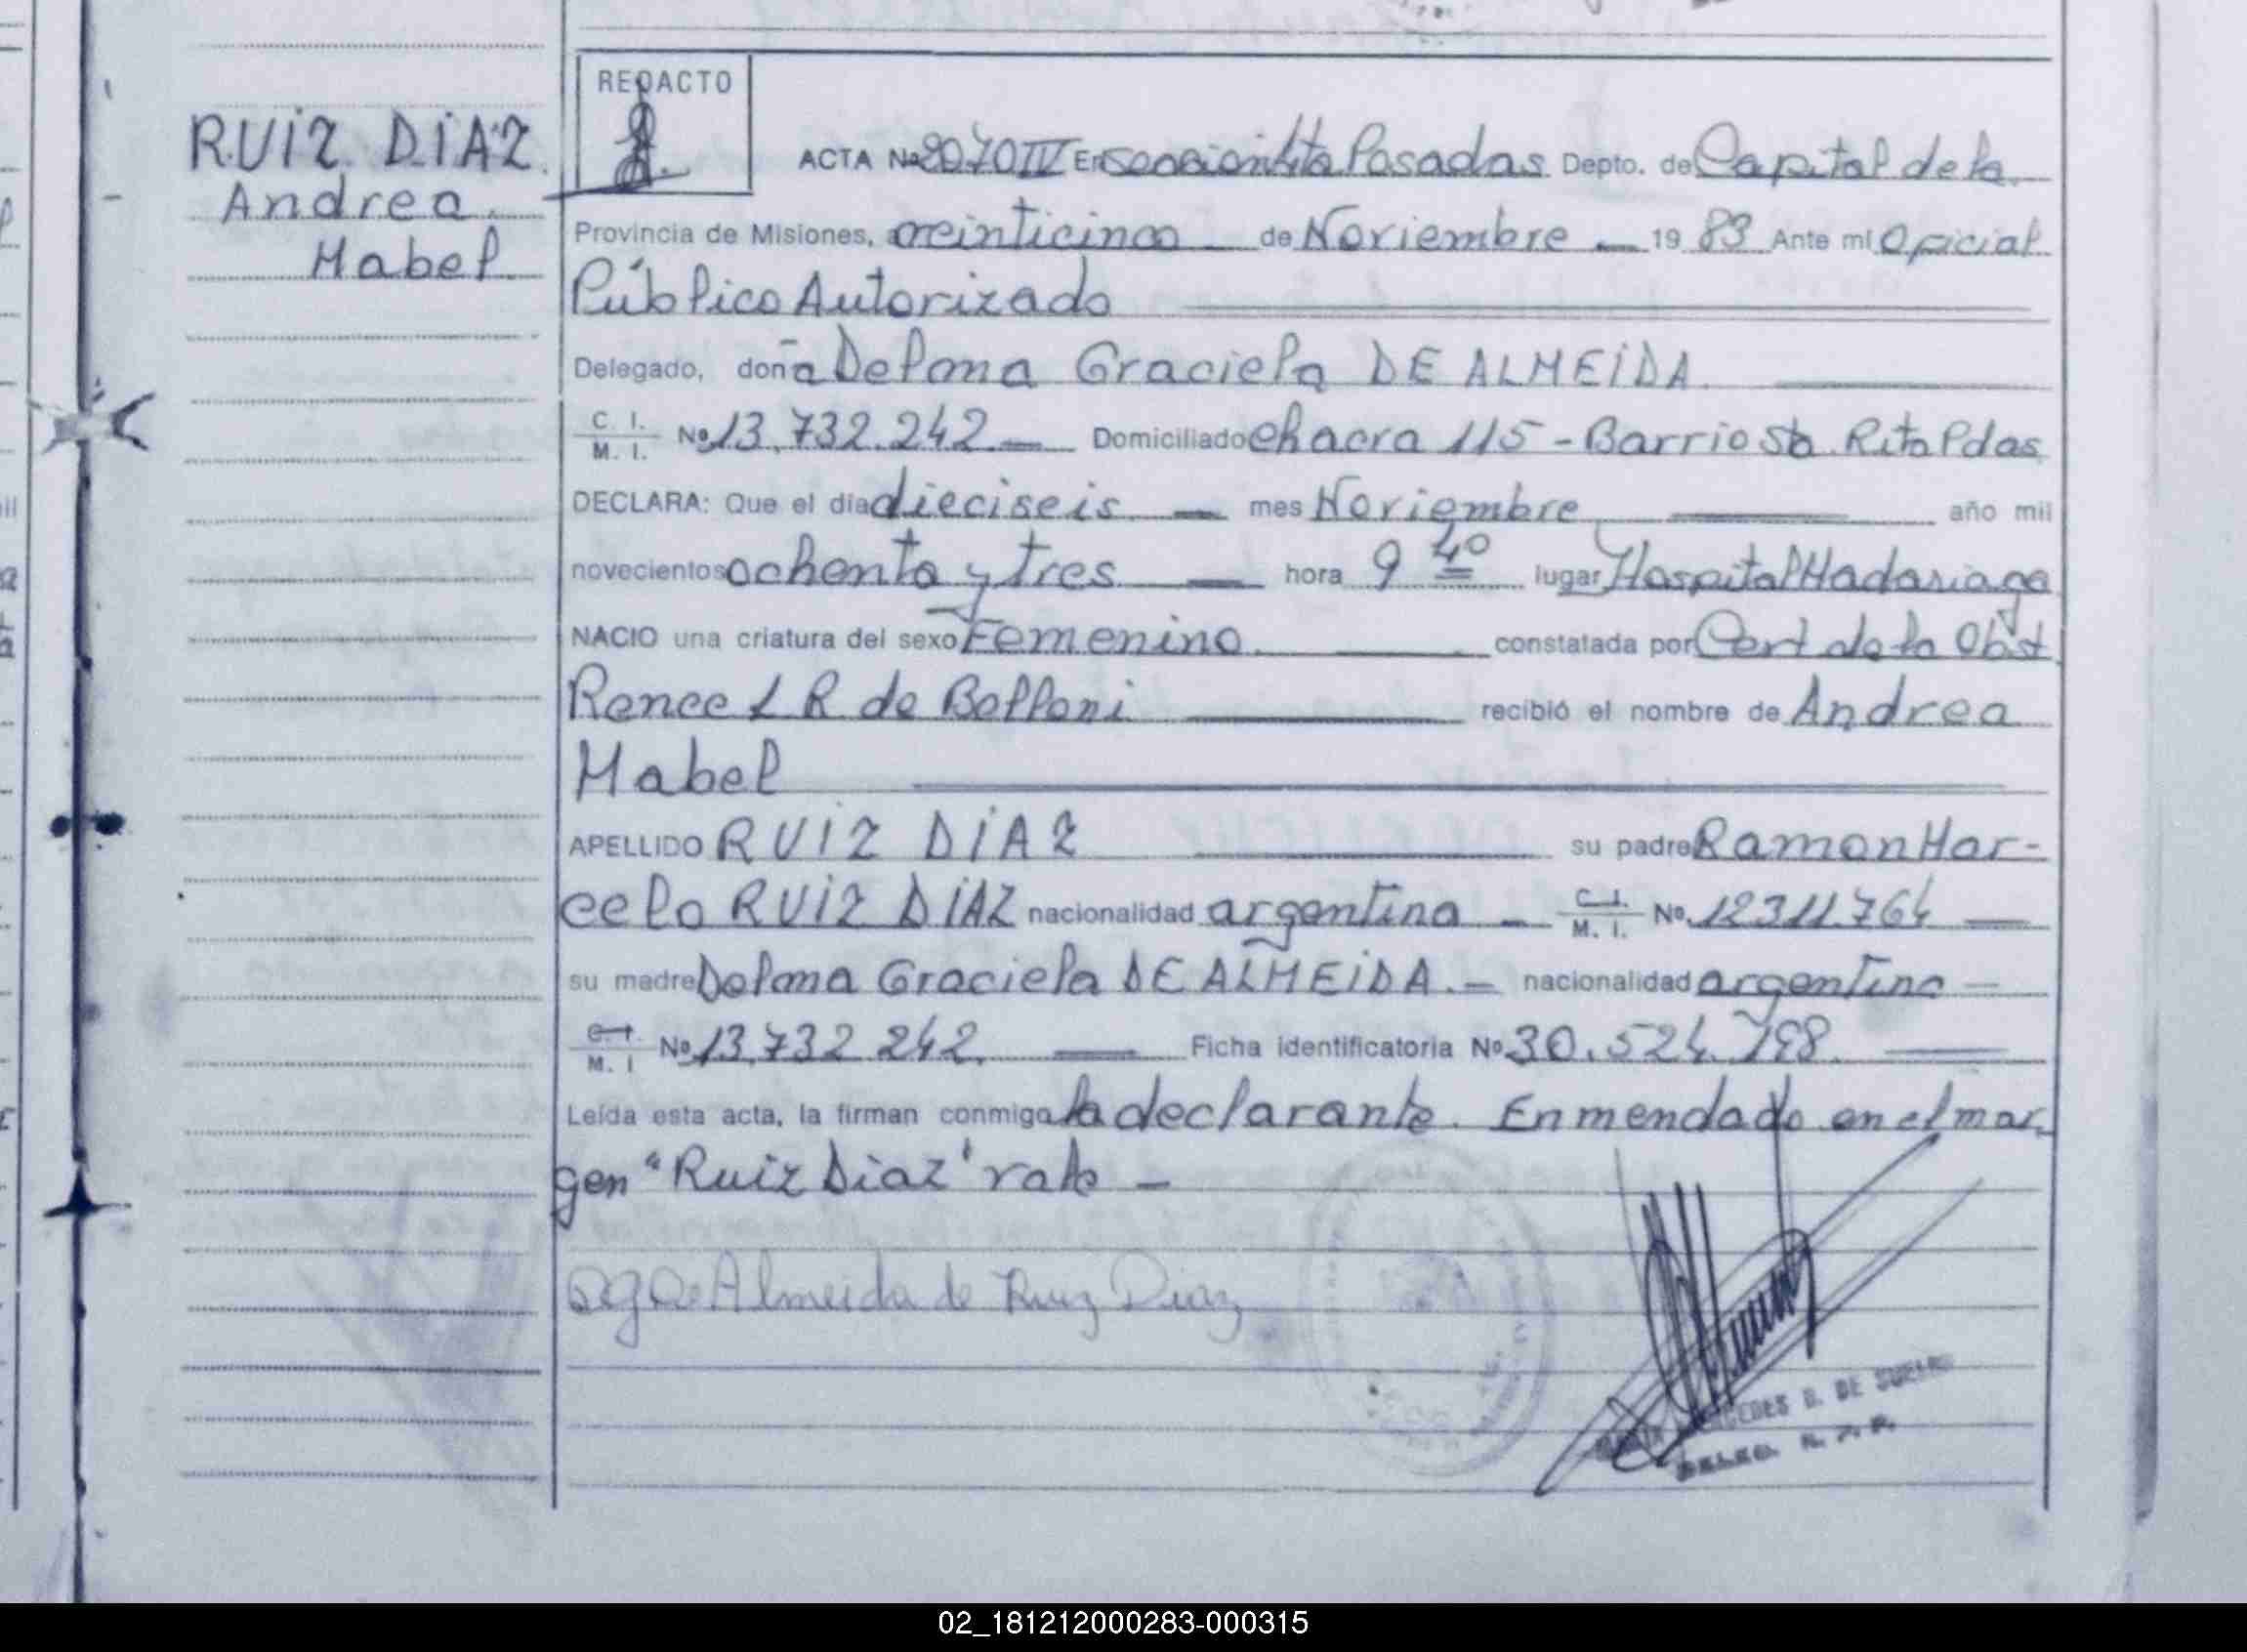 RUIZ DIAZ
Andrea
Mabel
REDACTO
ACTA Nº 2070 IV En sección 4ta Posadas Depto. de Capital de la
Provincia de Misiones, a veinticinco de Noviembre 19 83 Ante mi Oficial
Público Autorizado
Delegado, doña Delma Graciela DE ALMEIDA
C. I. / M. I. Nº 13.732.242 Domiciliado chacra 115 - Barrio Sta. Rita Pdas
DECLARA: Que el día dieciseis mes Noviembre año mil
novecientos ochenta y tres hora 9 40 lugar Hospital Madariaga
NACIO una criatura del sexo Femenino constatada por Cert de la Obst
Renee L R de Belloni recibió el nombre de Andrea
Mabel
APELLIDO RUIZ DIAZ su padre Ramon Mar-
celo RUIZ DIAZ nacionalidad argentina C. I. / M. I. Nº 12311.764
su madre Delma Graciela DE ALMEIDA.- nacionalidad argentina
C. I. / M. I Nº 13.732 242. Ficha identificatoria Nº 30.524.798.
Leída esta acta, la firman conmigo la declarante. Enmendado en el mar
gen "Ruiz Diaz" vale -
Almeida de Ruiz Diaz
DE
02_181212000283-000315